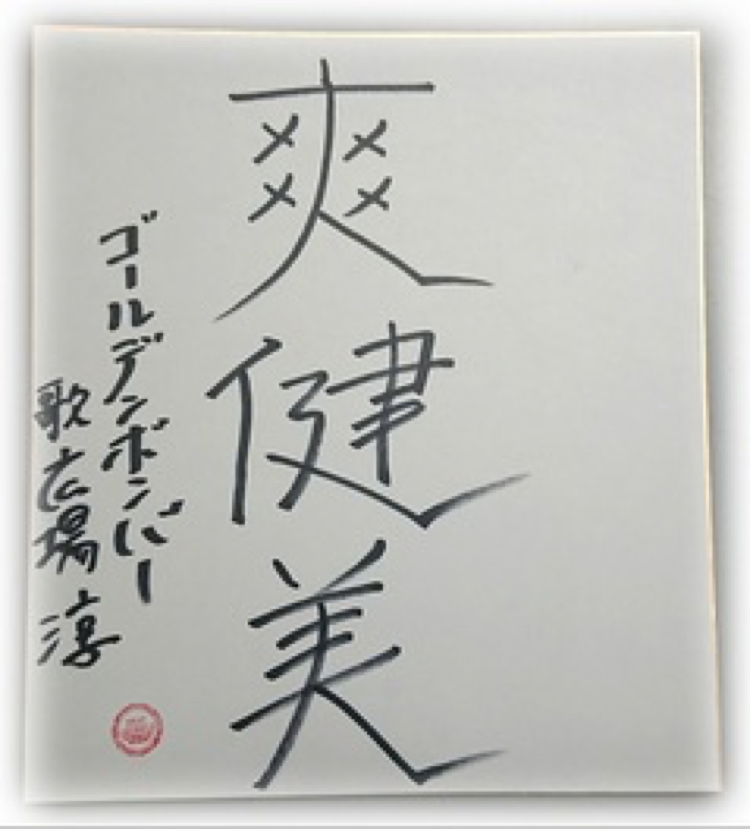 爽健美
ゴールデンボンバー
歌広場淳